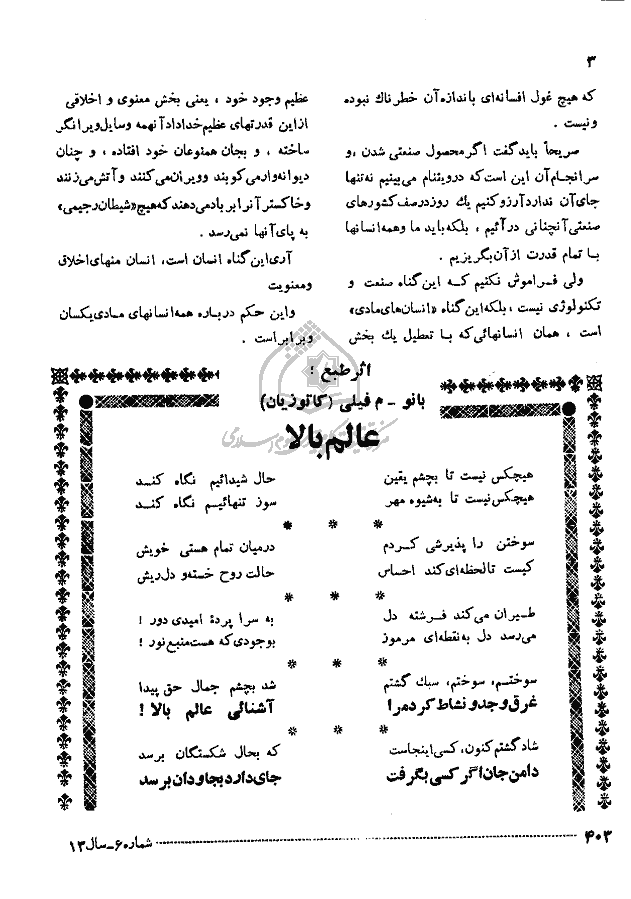 ۳
که هیچ غول افسانه‌ای باندازه آن خطرناك نبوده
و نیست .
صریحاً باید گفت اگر محصول صنعتی شدن ، و
سرانجام آن این است که در ویتنام می‌بینیم نه تنها
جای آن ندارد آرزو کنیم یك روز در صف کشورهای
صنعتی آنچنانی در آئیم ، بلکه باید ما و همه انسانها
با تمام قدرت از آن بگریزیم .
ولی فراموش نکنیم که این گناه صنعت و
تکنولوژی نیست ، بلکه این گناه «انسان‌های مادی»
است ، همان انسانهائی که با تعطیل یك بخش
عظیم وجود خود ، یعنی بخش معنوی و اخلاقی
از این قدرتهای عظیم خداداد آنهمه وسایل ویرانگر
ساخته ، و بجان همنوعان خود افتاده ، و چنان
دیوانه‌وار می‌کوبند و ویران می‌کنند و آتش می‌زنند
و خاکستر آنرا بر باد می‌دهند که هیچ «شیطان رجیمی»
به پای آنها نمی‌رسد .
آری این گناه انسان است، انسان منهای اخلاق
و معنویت
و این حکم درباره همه انسانهای مادی یکسان
و برابر است .
اثر طبع :
بانو - م فیلی (کاتوزیان)
عالم بالا
هیچکس نیست تا بچشم یقین حال شیدائیم نگاه کند
هیچکس نیست تا به شیوه مهر سوز تنهائیم نگاه کند
* * *
سوختن را پذیرشی کردم درمیان تمام هستی خویش
کیست تا لحظه‌ای کند احساس حالت روح خسته و دلریش
* * *
طیران می‌کند فرشته دل به سرا پردهٔ امیدی دور !
می‌رسد دل به نقطه‌ای مرموز بوجودی که هست منبع نور !
* * *
سوختم، سوختم، سبك گشتم شد بچشم جمال حق پیدا
غرق وجد و نشاط کرد مرا آشنائی عالم بالا !
* * *
شاد گشتم کنون، کسی اینجاست که بحال شکستگان برسد
دامن جان اگر کسی بگرفت جای دارد بجاودان برسد
۴۰۳
شماره ۶ - سال ۱۳